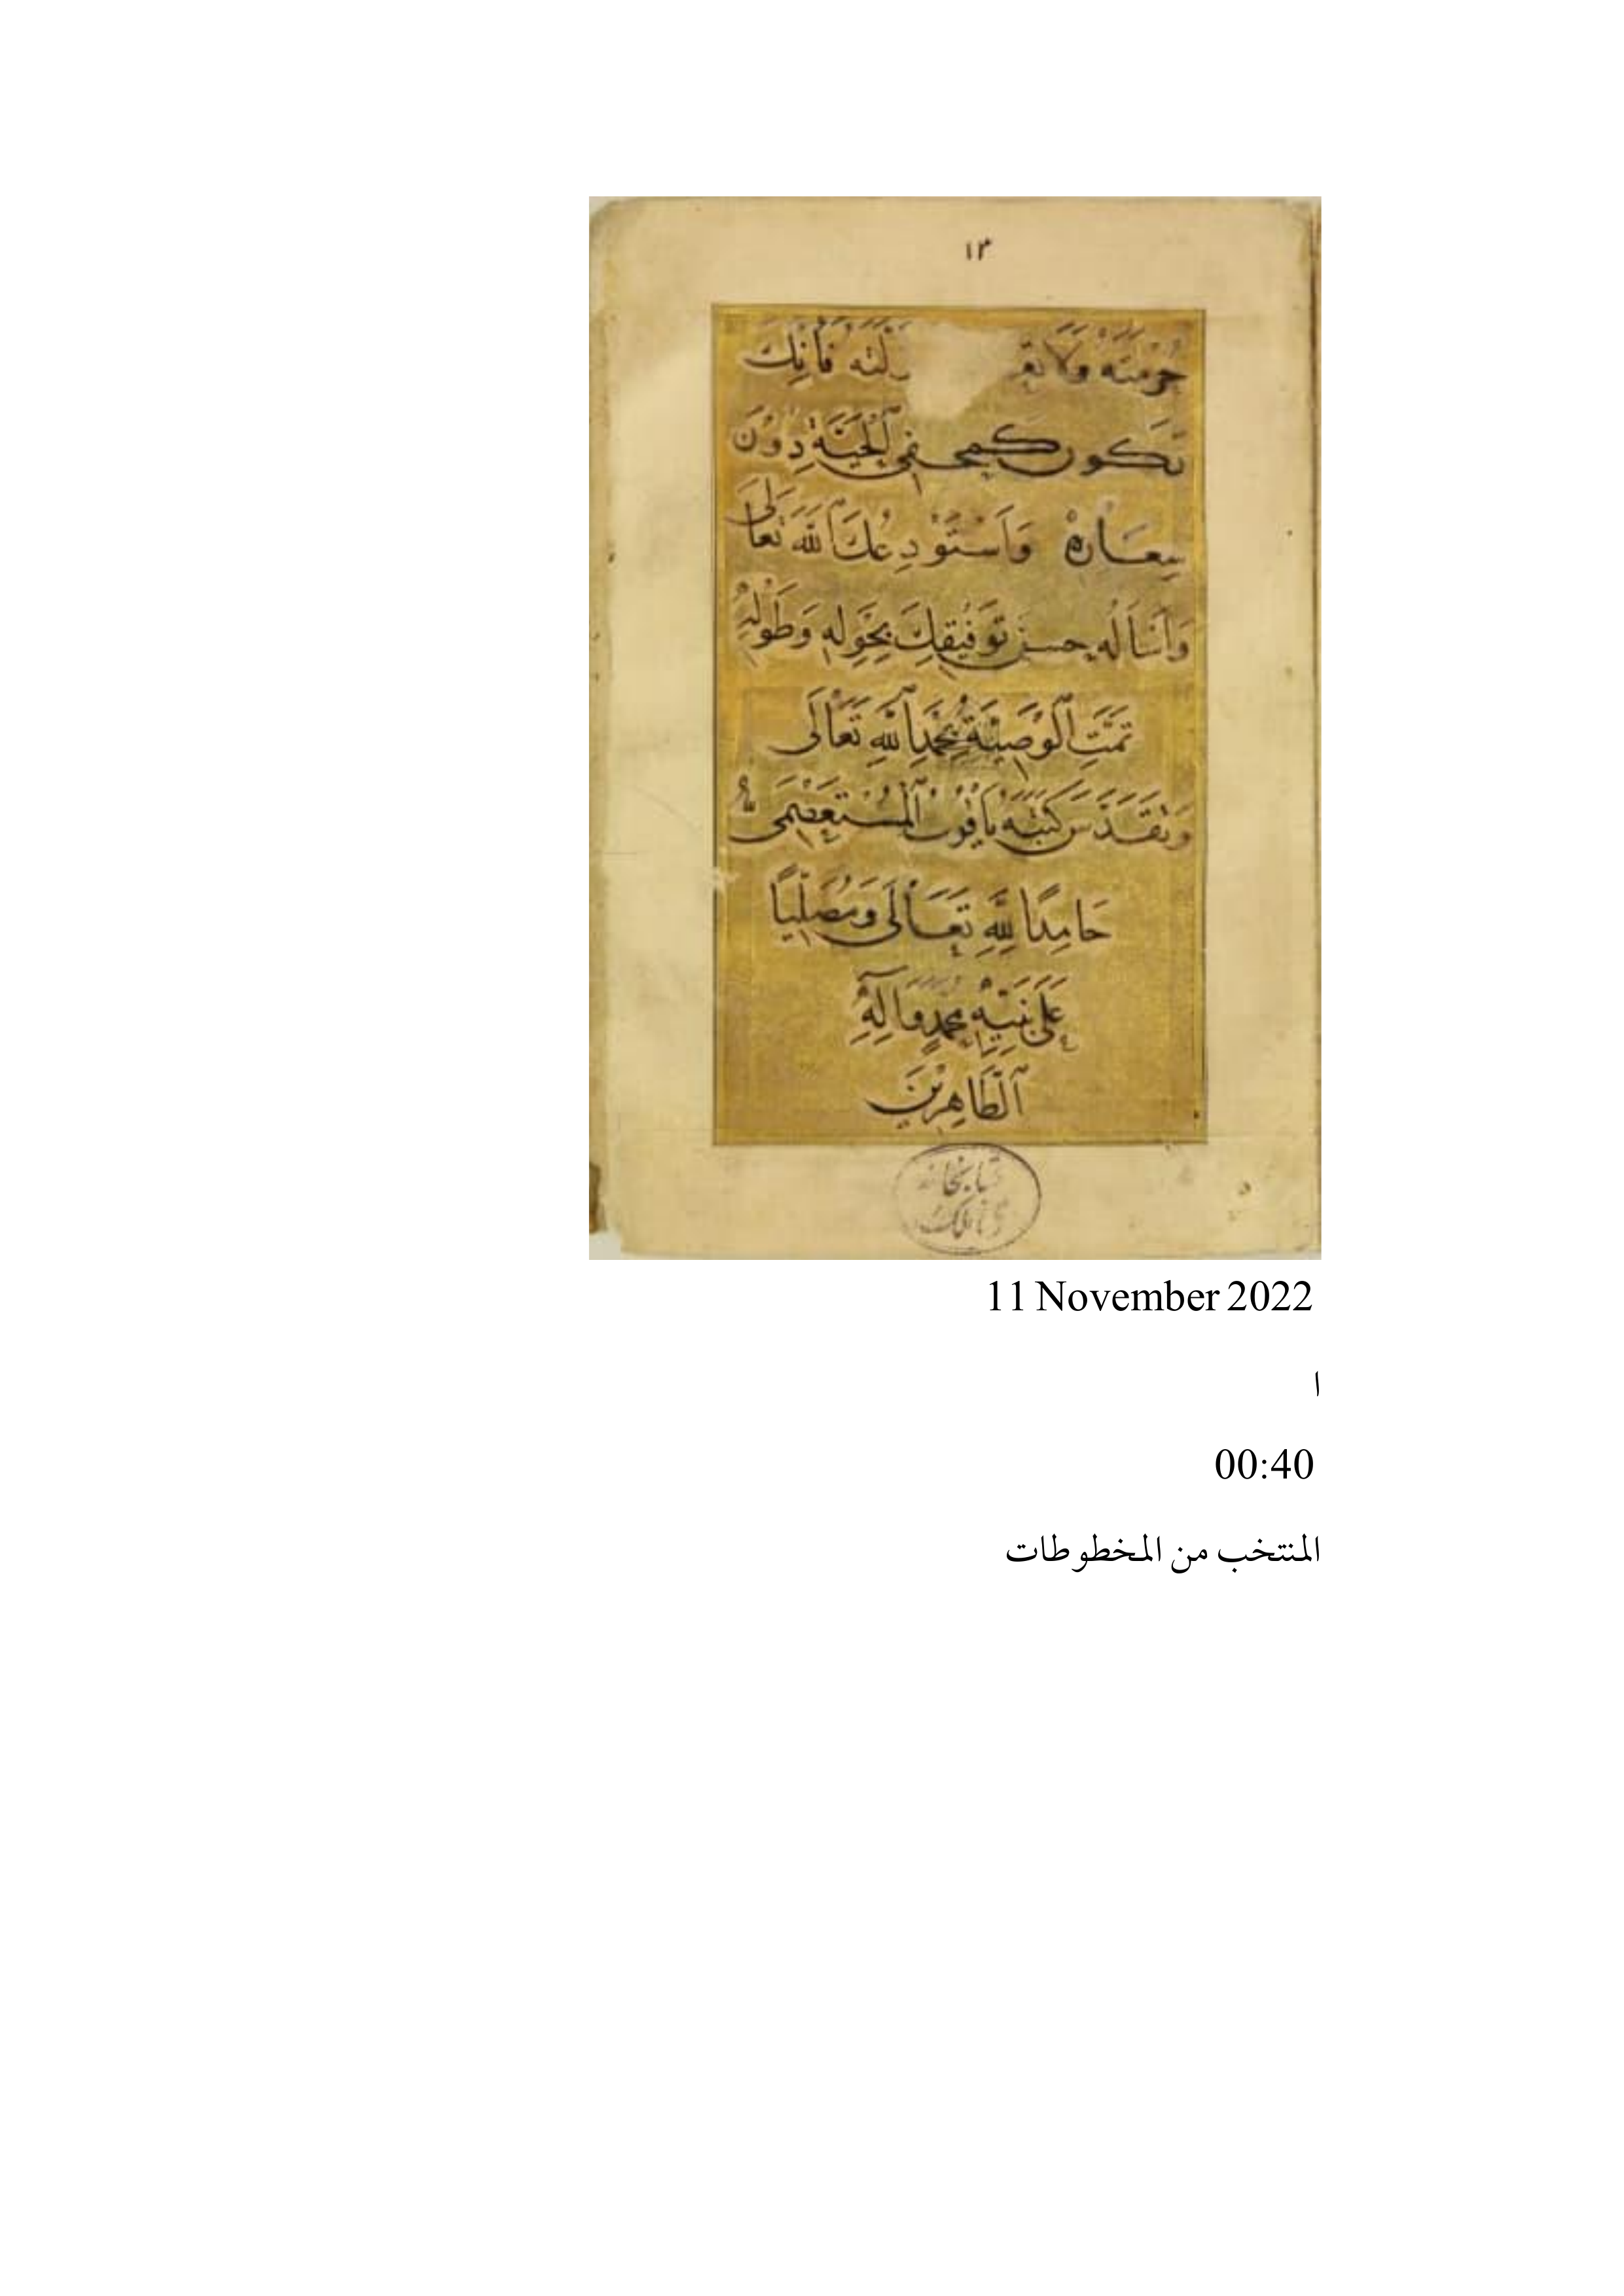 ١٣
حُرْمَتَهُ وَلَا فَإِنَّكَ
تَكُون فِي الْجَنَّةِ دُوْنَ
وَاَسْتَوْدِعُكَ اللهَ تَعَالَى
وَاَسْأَلُهُ حسن تَوْفِيْقِكَ بِحَوْلِهِ وَطَوْلِهِ
تَمَّتِ الْوَصِيَّةُ بِحَمْدِ اللهِ تَعَالَى
وَتَقَدَّسَ كَتَبَهُ يَاقُوت الْمُسْتَعْصِمِي
حَامِدًا لِلهِ تَعَالَى وَمُصَلِّيًا
عَلَى نَبِيِّهِ مُحَمَّدٍ وَآلِهِ
الطَّاهِرِيْنَ
كتابخانه
ملك
11 November 2022
ا
00:40
المنتخب من المخطوطات